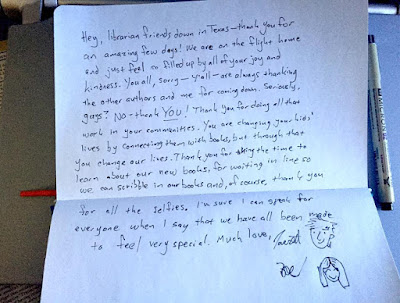 Hey, librarian friends down in Texas—thank you for
an amazing few days! We are on the flight home
and just feel so filled up by all of your joy and
kindness. You all, sorry—Y'all—are always thanking
the other authors and me for coming down. Seriously,
guys? NO—thank YOU! Thank you for doing all that
work in your communities. You are changing your kids'
lives by connecting them with books, but through that
you change our lives. Thank you for taking the time to
learn about our new books, for waiting in line so
we can scribble in our books and, of course, thank you
for all the selfies. I'm sure I can speak for
everyone when I say that we have all been made
to feel very special. Much love,